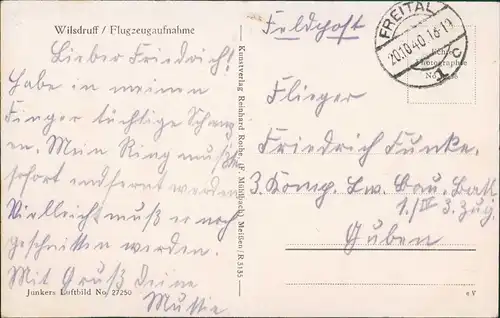 Wilsdruff / Flugzeugaufnahme
Lieber Friedrich!
Habe in meinem
Finger tüchtige
en. Mein Ring mußte
sofort entfernt werden
Vielleicht muß er noch
geschnitten werden.
Mit Gruß deine
Muttie
Junkers Luftbild No. 27250
Kunstverlag Reinhard Rothe, (F. Mühlbach) Meißen / R 3135
Feldpost
FREITAL
20.10.40.16-19
1 c
Echte
Photographie
No.
Flieger
Friedrich Funke.
3. Komp. Lw. Bau. Batl.
1./III 3. Zug.
Guben
e V